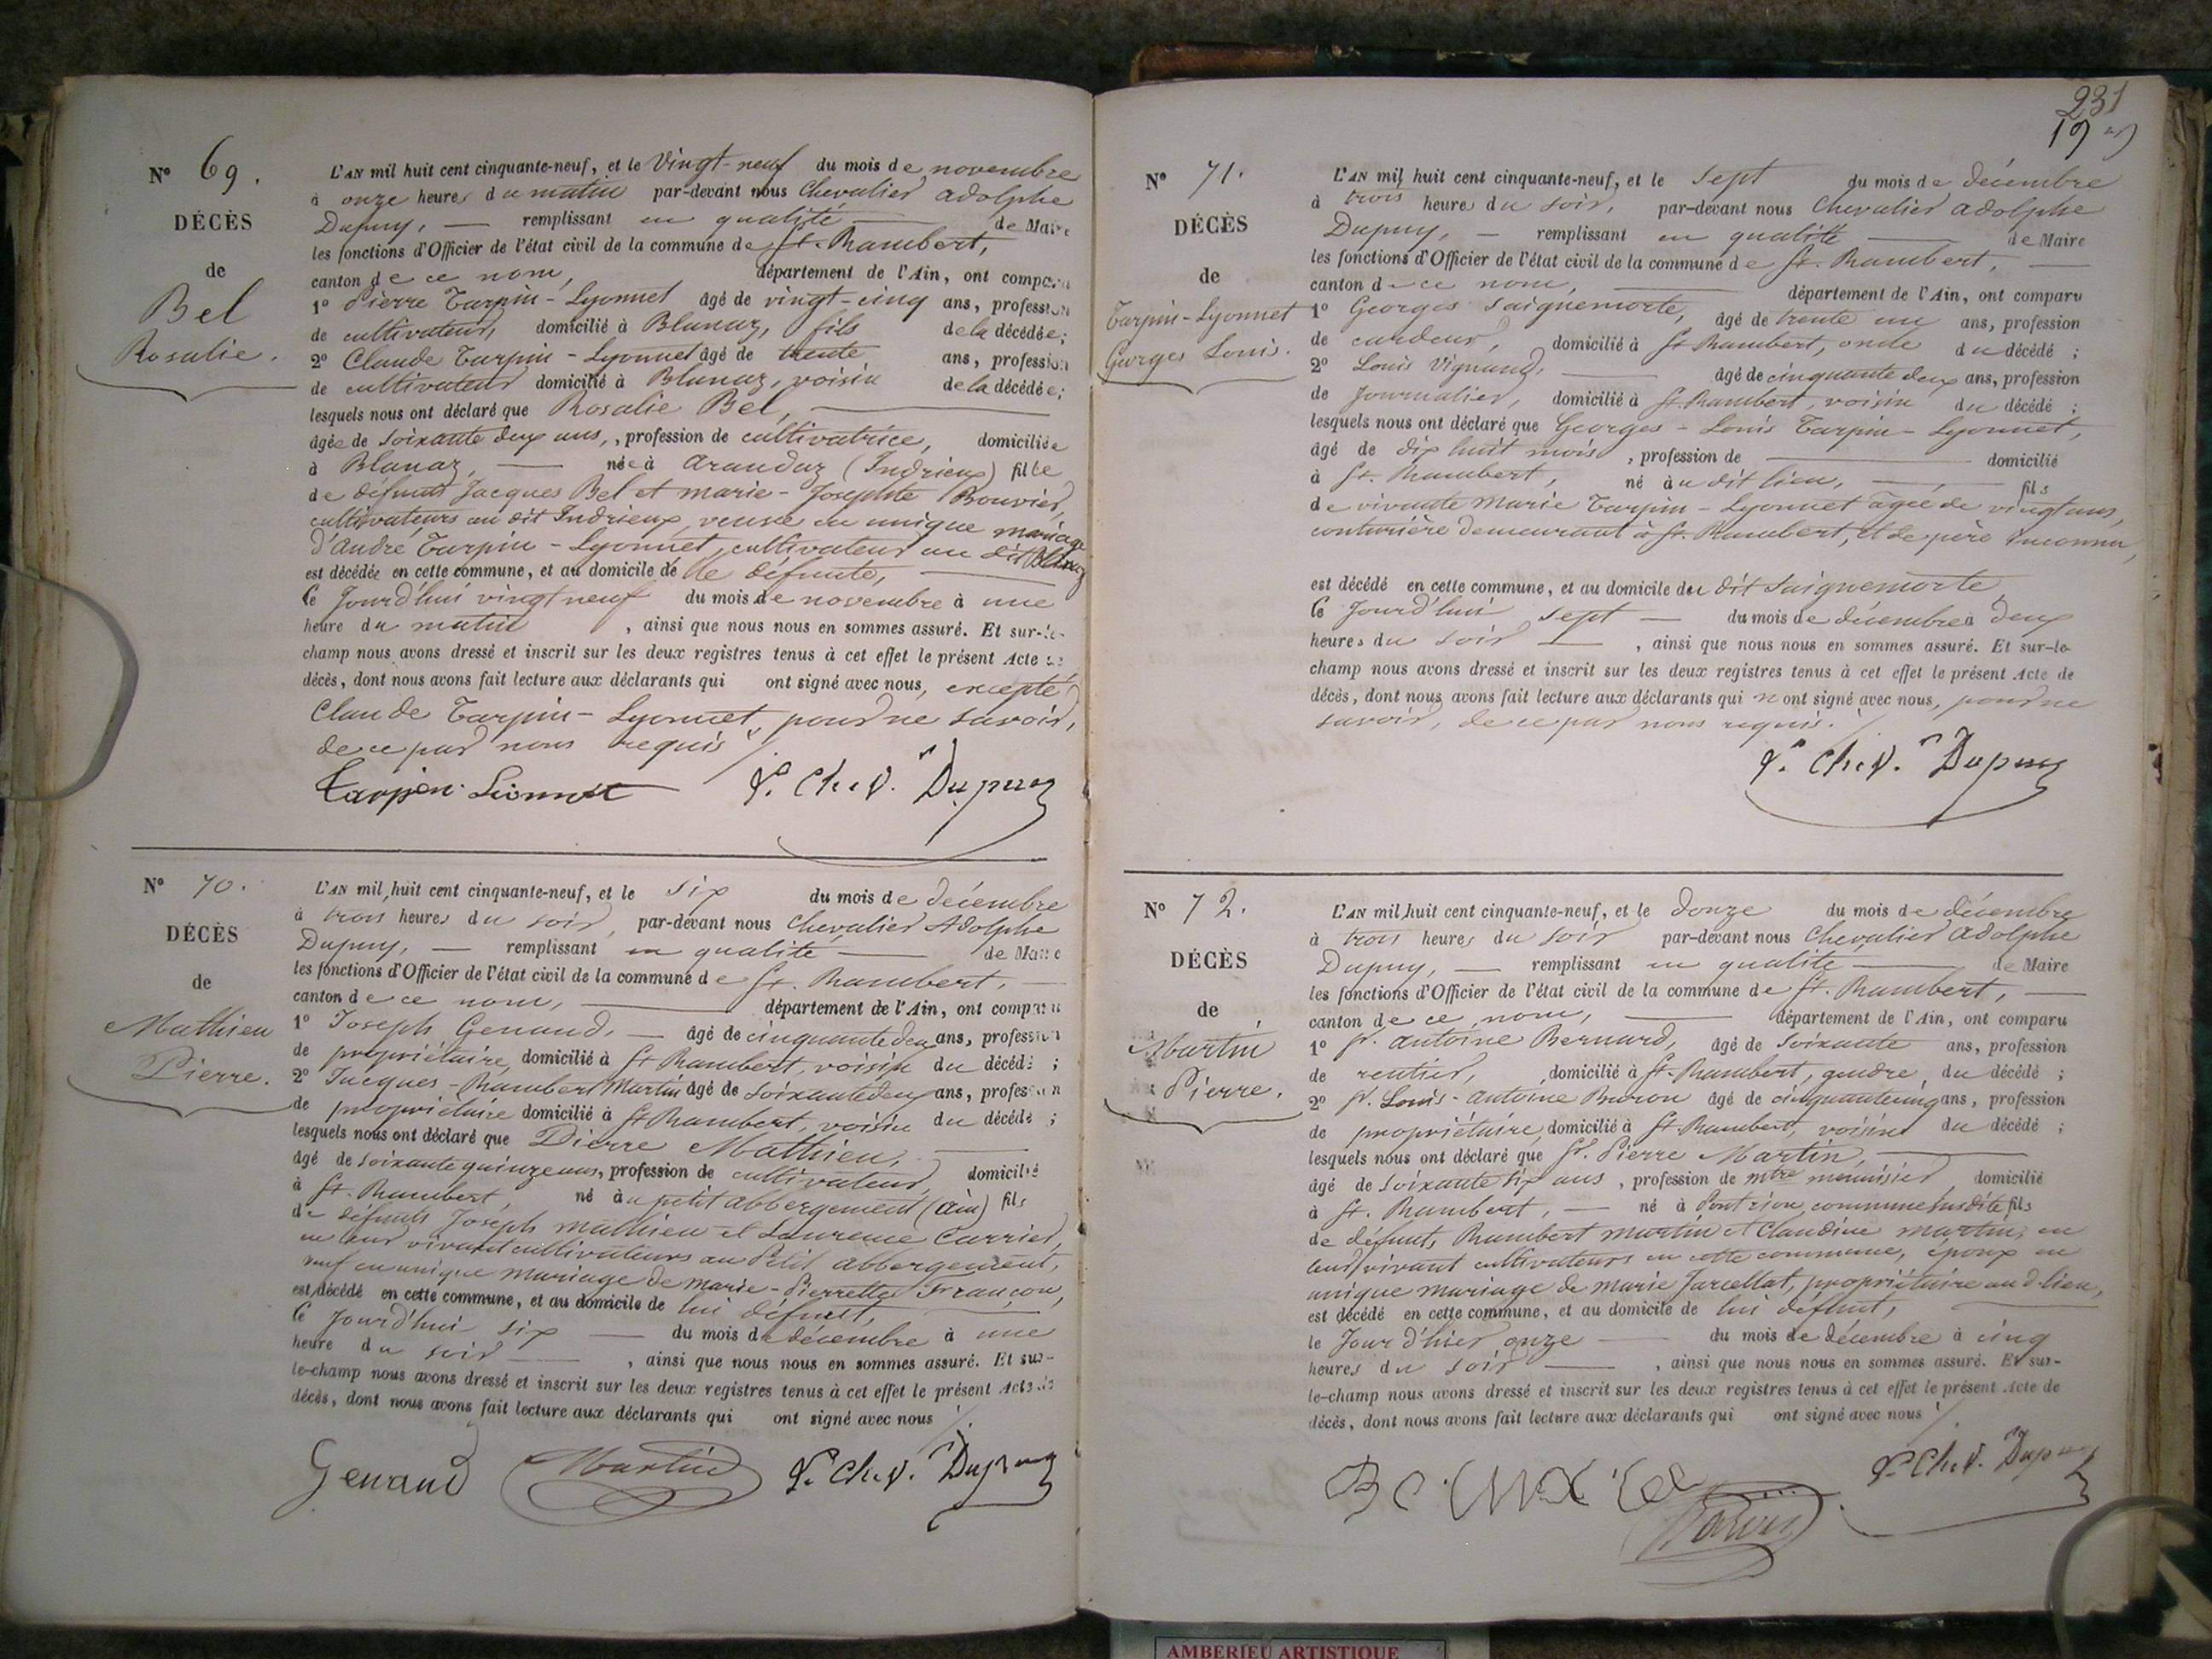 Nº 69.
DÉCÈS
de
Bel
Rosalie.
L'AN mil huit cent cinquante-neuf, et le Vingt-neuf du mois de novembre
à onze heures du matin par-devant nous Chevalier Adolphe
Dupuy, — remplissant en qualité — de Maire
les fonctions d'Officier de l'état civil de la commune de St. Rambert,
canton de ce nom, département de l'Ain, ont comparu
1º Pierre Tarpin-Lyonnet âgé de vingt-cinq ans, profession
de cultivateur, domicilié à Blanaz, fils de la décédée;
2º Claude Tarpin-Lyonnet âgé de trente ans, profession
de cultivateur domicilié à Blanaz, voisin de la décédée;
lesquels nous ont déclaré que Rosalie Bel, —
âgée de soixante deux ans, profession de cultivatrice, domiciliée
à Blanaz, — née à Arandaz (Indrieux) fille
de défunts Jacques Bel et marie-Josephte Bouvier,
cultivateurs au dit Indrieux, veuve en unique mariage
d'André Tarpin-Lyonnet, cultivateur au dit Blanaz
est décédée en cette commune, et au domicile de de défunte, —
le Jourd'hui vingt neuf du mois de novembre à une
heure du matin, ainsi que nous nous en sommes assuré. Et sur-le-
champ nous avons dressé et inscrit sur les deux registres tenus à cet effet le présent Acte de
décès, dont nous avons fait lecture aux déclarants qui ont signé avec nous, excepté
Claude Tarpin-Lyonnet, pour ne savoir,
de ce par nous requis ./.
Tarpin Lionnet P. Chev. Dupuy
Nº 70.
DÉCÈS
de
Mathieu
Pierre.
L'AN mil huit cent cinquante-neuf, et le six du mois de décembre
à trois heures du soir, par-devant nous Chevalier Adolphe
Dupuy, — remplissant en qualité — de Maire
les fonctions d'Officier de l'état civil de la commune de St. Rambert, —
canton de ce nom, — département de l'Ain, ont comparu
1º Joseph Genaud, — âgé de cinquante deux ans, profession
de propriétaire, domicilié à St Rambert, voisin du décédé ;
2º Jacques-Rambert Martin âgé de soixante deux ans, profession
de propriétaire domicilié à St Rambert, voisin du décédé ;
lesquels nous ont déclaré que Pierre Mathieu, —
âgé de soixante quinze ans, profession de cultivateur, domicilié
à St. Rambert, né au petit abbergement (ain) fils
de défunts Joseph mathieu et Laurence Carrier,
en leur vivant cultivateurs au Petit abbergement,
veuf en unique mariage de marie-Pierrette Françon,
est décédé en cette commune, et au domicile de lui défunt, —
le Jourd'hui six — du mois de décembre à une
heure du soir —, ainsi que nous nous en sommes assuré. Et sur-
le-champ nous avons dressé et inscrit sur les deux registres tenus à cet effet le présent Acte de
décès, dont nous avons fait lecture aux déclarants qui ont signé avec nous ./.
Genaud Martin P. Chev. Dupuy
231
Nº 71.
DÉCÈS
de
Tarpin-Lyonnet
Georges Louis.
L'AN mil huit cent cinquante-neuf, et le sept du mois de décembre
à trois heures du soir, par-devant nous Chevalier Adolphe
Dupuy, — remplissant en qualité — de Maire
les fonctions d'Officier de l'état civil de la commune de St. Rambert, —
canton de ce nom, — département de l'Ain, ont comparu
1º Georges Saignemorte, âgé de trente un ans, profession
de cardeur, domicilié à St Rambert, oncle du décédé ;
2º Louis Vignand, — âgé de cinquante deux ans, profession
de Journalier, domicilié à St. Rambert, voisin du décédé ;
lesquels nous ont déclaré que Georges-Louis Tarpin-Lyonnet,
âgé de dix huit mois, profession de — domicilié
à St. Rambert, né au dit lieu, — fils
de vivante Marie Tarpin-Lyonnet âgée de vingt ans,
couturière demeurant à St. Rambert, et de père inconnu,
est décédé en cette commune, et au domicile du dit Saignemorte
le Jourd'hui sept — du mois de décembre à deux
heures du soir —, ainsi que nous nous en sommes assuré. Et sur-le-
champ nous avons dressé et inscrit sur les deux registres tenus à cet effet le présent Acte de
décès, dont nous avons fait lecture aux déclarants qui n'ont signé avec nous, pour ne
savoir, de ce par nous requis. ./.
P. Chev. Dupuy
Nº 72.
DÉCÈS
de
Martin
Pierre.
L'AN mil huit cent cinquante-neuf, et le douze du mois de décembre
à trois heures du soir par-devant nous Chevalier Adolphe
Dupuy, — remplissant en qualité — de Maire
les fonctions d'Officier de l'état civil de la commune de St. Rambert, —
canton de ce nom, — département de l'Ain, ont comparu
1º Sr. Antoine Bernard, âgé de soixante ans, profession
de rentier, domicilié à St. Rambert, gendre du décédé ;
2º Sr. Louis-Antoine Buron âgé de cinquante cinq ans, profession
de propriétaire, domicilié à St. Rambert, voisin du décédé ;
lesquels nous ont déclaré que Sr. Pierre Martin, —
âgé de soixante six ans, profession de mtre menuisier, domicilié
à St. Rambert, — né à commune susdite, fils
de défunts Rambert martin et Claudine martin, en
leur vivant cultivateurs en cette commune, époux en
unique mariage de marie Jarcellat, propriétaire au d. lieu,
est décédé en cette commune, et au domicile de lui défunt, —
le Jour d'hier onze — du mois de décembre à cinq
heures du soir —, ainsi que nous nous en sommes assuré. Et sur-
le-champ nous avons dressé et inscrit sur les deux registres tenus à cet effet le présent Acte de
décès, dont nous avons fait lecture aux déclarants qui ont signé avec nous ./.
P. Chev. Dupuy
AMBERIEU ARTISTIQUE